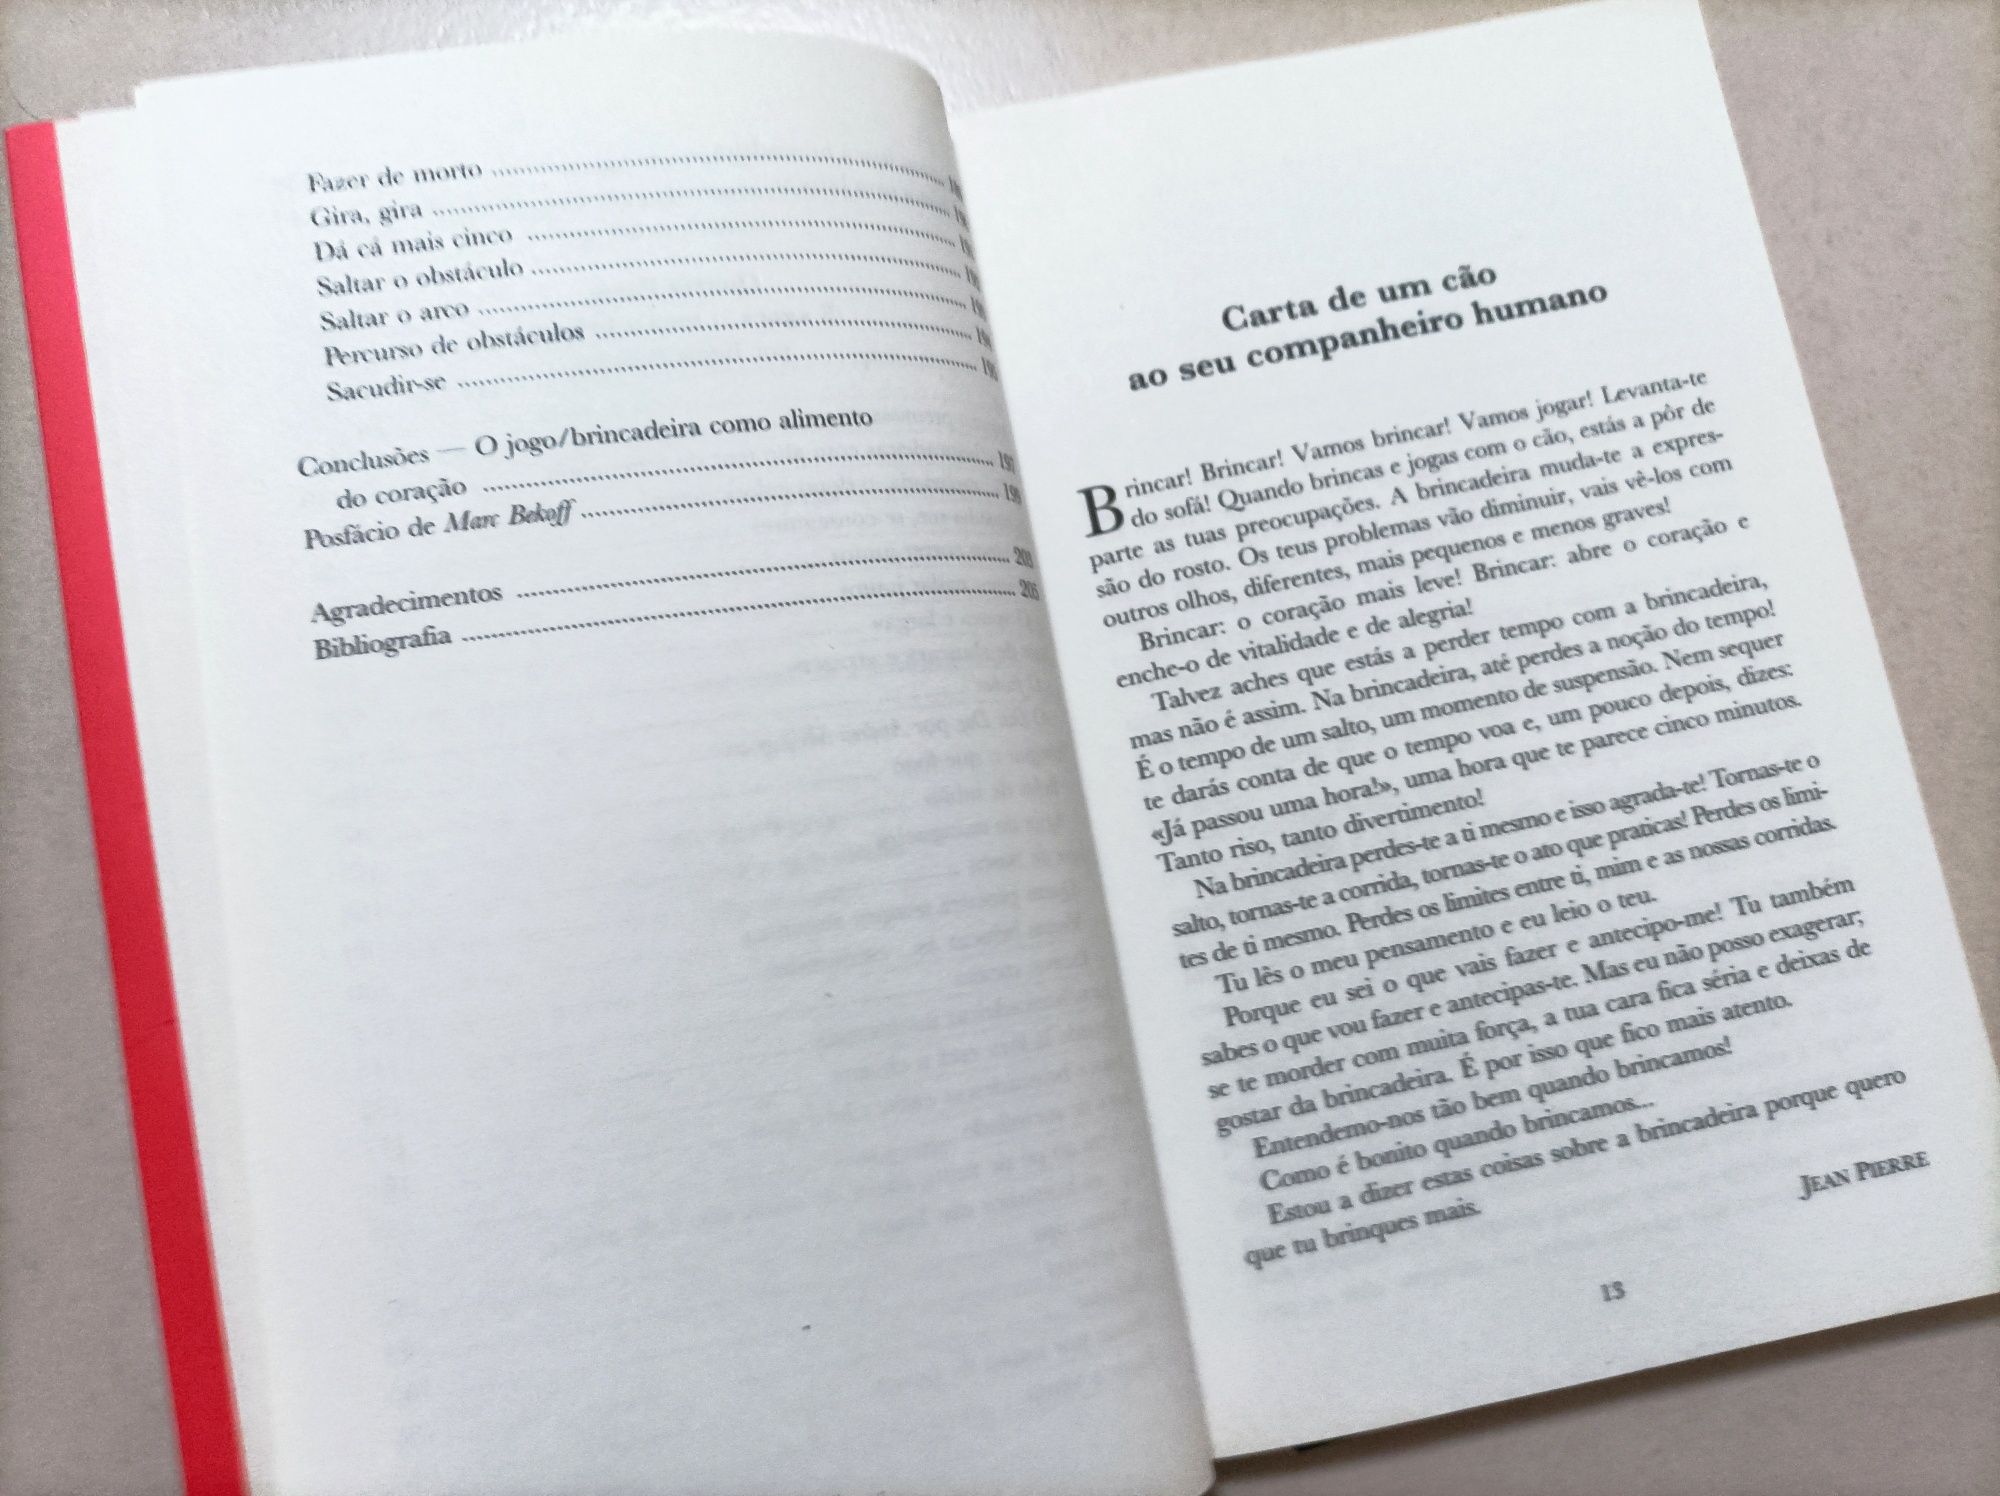 Fazer de morto
Gira, gira
Dá cá mais cinco
Saltar o obstáculo
Saltar o arco
Percurso de obstáculos
Sacudir-se
Conclusões — O jogo/brincadeira como alimento
do coração
Posfácio de Marc Bekoff
Agradecimentos
Bibliografia ... 205
Carta de um cão
ao seu companheiro humano
Brincar! Brincar! Vamos brincar! Vamos jogar! Levanta-te
do sofá! Quando brincas e jogas com o cão, estás a pôr de
parte as tuas preocupações. A brincadeira muda-te a expres-
são do rosto. Os teus problemas vão diminuir, vais vê-los com
outros olhos, diferentes, mais pequenos e menos graves!
Brincar: o coração mais leve! Brincar: abre o coração e
enche-o de vitalidade e de alegria!
Talvez aches que estás a perder tempo com a brincadeira,
mas não é assim. Na brincadeira, até perdes a noção do tempo!
É o tempo de um salto, um momento de suspensão. Nem sequer
te darás conta de que o tempo voa e, um pouco depois, dizes:
«Já passou uma hora!», uma hora que te parece cinco minutos.
Tanto riso, tanto divertimento!
Na brincadeira perdes-te a ti mesmo e isso agrada-te! Tornas-te o
salto, tornas-te a corrida, tornas-te o ato que praticas! Perdes os limi-
tes de ti mesmo. Perdes os limites entre ti, mim e as nossas corridas.
Tu lês o meu pensamento e eu leio o teu.
Porque eu sei o que vais fazer e antecipo-me! Tu também
sabes o que vou fazer e antecipas-te. Mas eu não posso exagerar;
se te morder com muita força, a tua cara fica séria e deixas de
gostar da brincadeira. É por isso que fico mais atento.
Entendemo-nos tão bem quando brincamos!
Como é bonito quando brincamos...
Estou a dizer estas coisas sobre a brincadeira porque quero
que tu brinques mais.
JEAN PIERRE
13